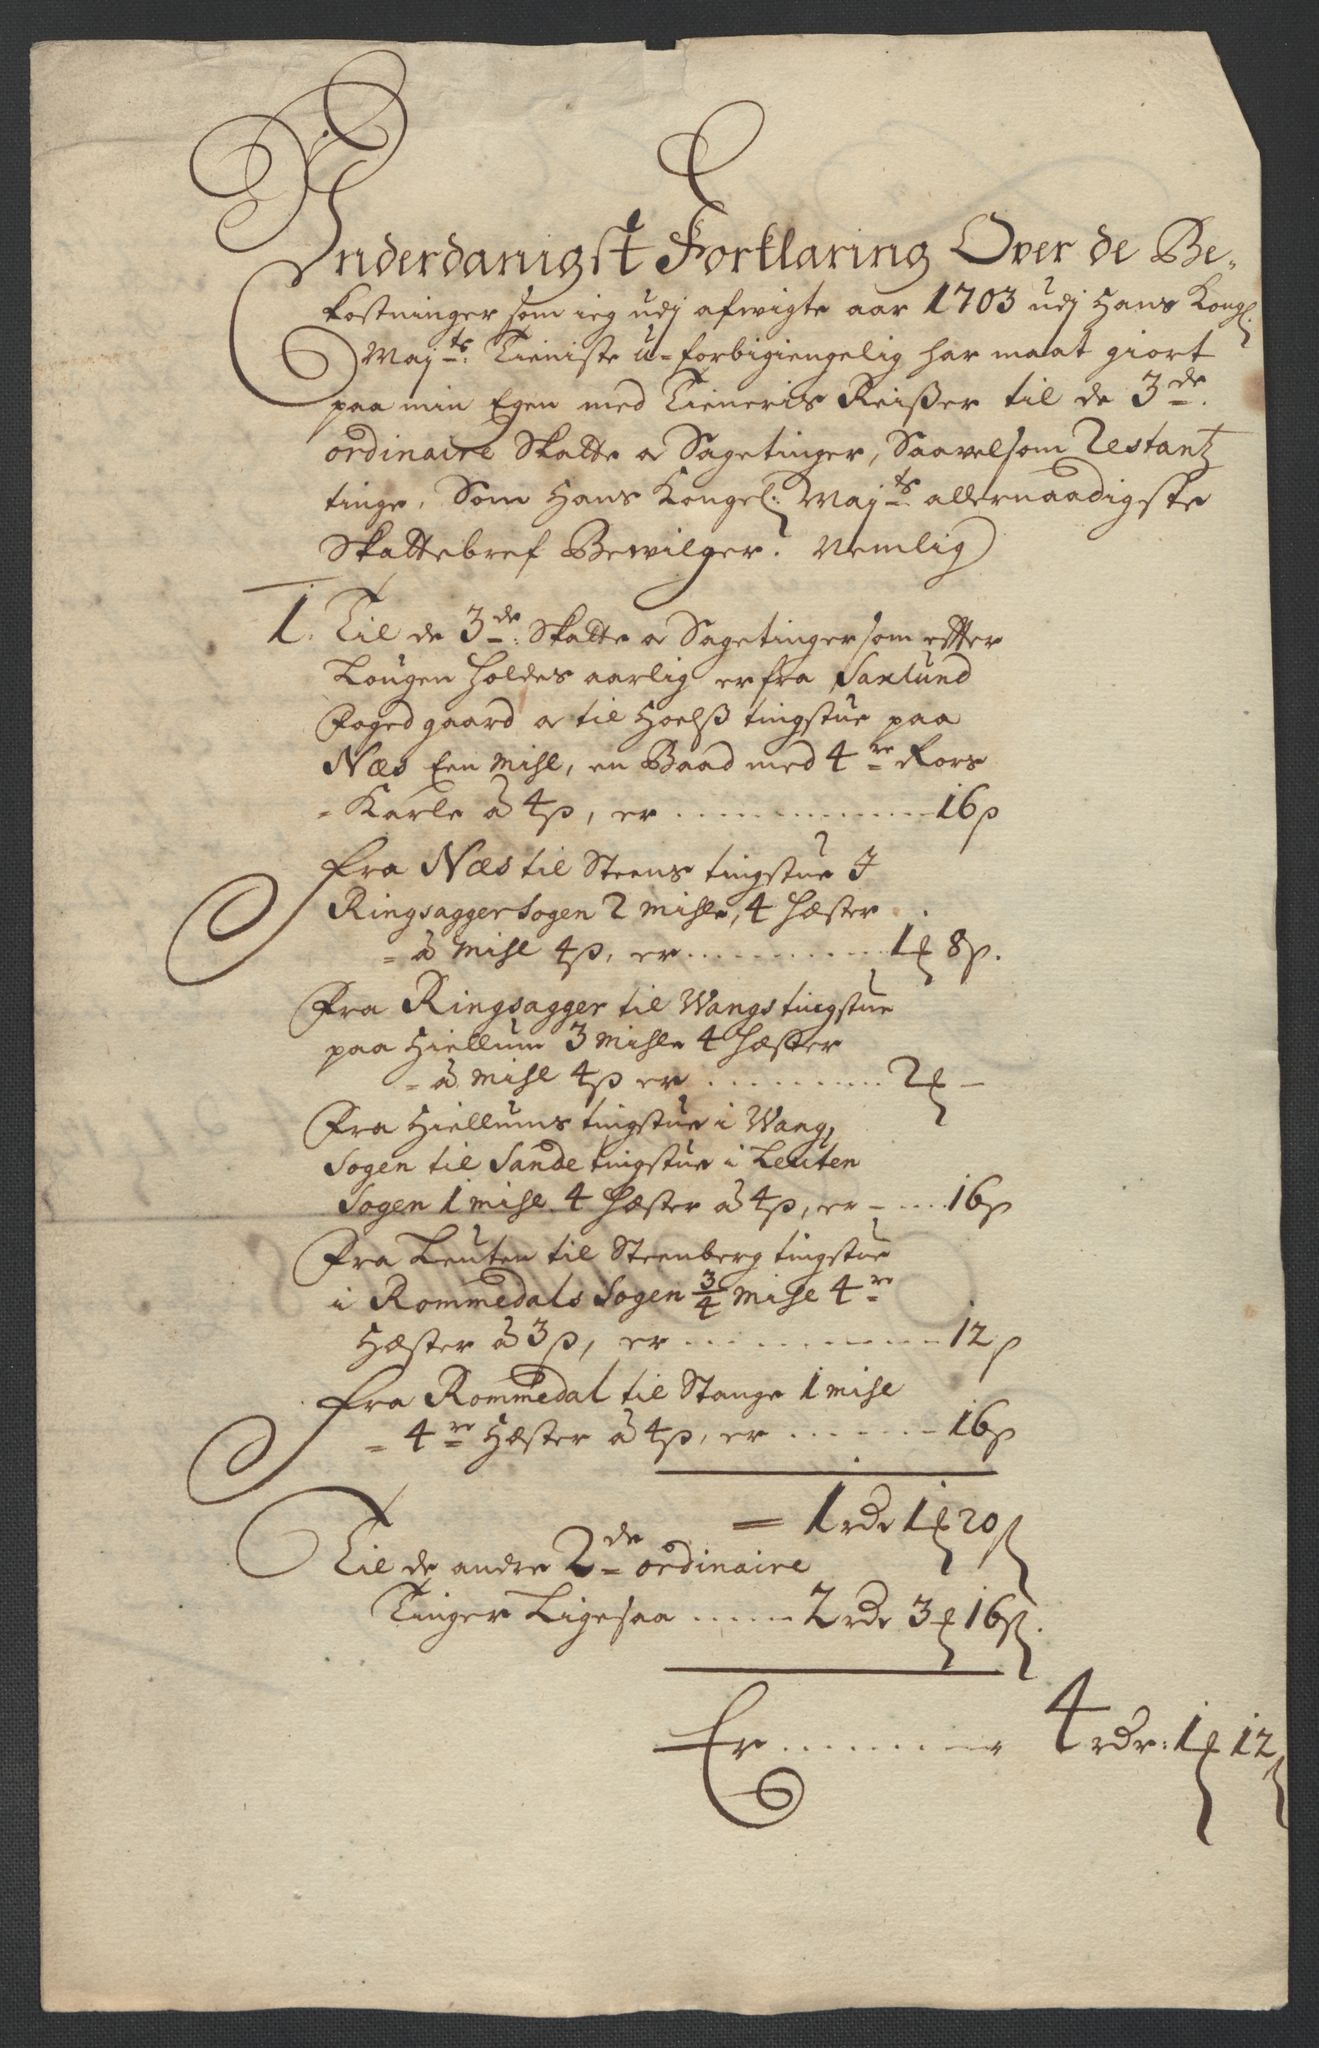 Underdanigst Forklaring Over de Be-
kostninger som ieg udj afwigte aar 1703 udj Hans Kongl:
Majts: Tieniste u-forbigiengelig har maat giort
paa min Egen med Tieneris Reißer til de 3de.
ordinaire Skatte o Sagetinger, Saavelsom Restantz
tinge, Som Hans Kongel: Majts: allernaadigste
Skattebref Bewilger: Nemlig
1. Til de 3de: Skatte o Sagetinger som efter
Lougen holdes aarlig er fra Saxlund
Foged gaard o til Hoelß tingstue paa
Næs Een Mihl, en Baad med 4re Rors
Karle â 4ß, er 16ß
Fra Næs til Steens tingstue I
Ringsagger Sogen 2 Mihle, 4 hæster
â Mihl 4ß, er 1 8ß.
Fra Ringsagger til Wangs tingstue
paa Hiellum 3 Mihle 4 hæster
â Mihl 4ß er 2 -
Fra Hiellums tingstue i Wang,
Sogen til Sande tingstue i Leuten
Sogen 1 mihl. 4 hæster â 4ß, er 16ß
Fra Leuten til Steenberg tingstue
i Rommedals Sogen 3/4 Mihl 4re
Hæster â 3ß, er 12ß
Fra Rommedal til Stange 1 mihl
4re Hæster â 4ß, er 16ß
= 1 rdr 1 20ß
Til de andre 2de ordinaire
Tinger Ligesaa 2 rdr 3 16ß.
Er 4 rdr: 1 12ß